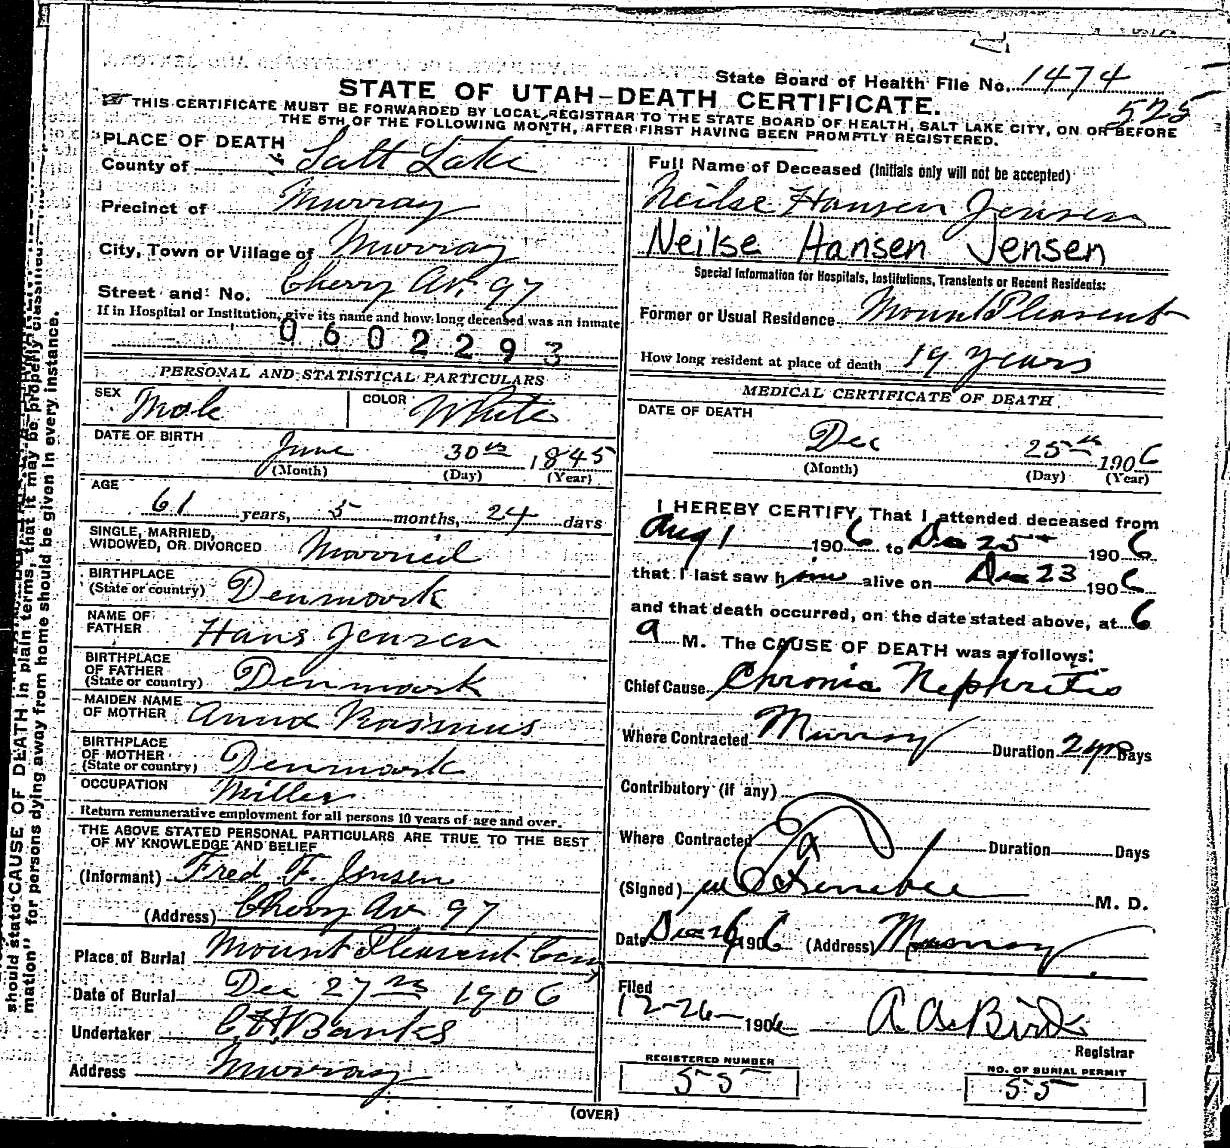 State Board of Health File No. 1474
525
STATE OF UTAH-DEATH CERTIFICATE.
THIS CERTIFICATE MUST BE FORWARDED BY LOCAL REGISTRAR TO THE STATE BOARD OF HEALTH, SALT LAKE CITY, ON OR BEFORE
THE 5TH OF THE FOLLOWING MONTH, AFTER FIRST HAVING BEEN PROMPTLY REGISTERED.
PLACE OF DEATH
County of Salt Lake
Precinct of Murray
City, Town or Village of Murray
Street and No. Cherry Av. 97
If in Hospital or Institution, give its name and how long deceased was an inmate
0602293
PERSONAL AND STATISTICAL PARTICULARS
SEX Male COLOR White
DATE OF BIRTH
June 30th 1845
(Month) (Day) (Year)
AGE
61 years, 5 months, 24 days
SINGLE, MARRIED,
WIDOWED, OR DIVORCED Married
BIRTHPLACE
(State or country) Denmark
NAME OF
FATHER Hans Jensen
BIRTHPLACE
OF FATHER
(State or country) Denmark
MAIDEN NAME
OF MOTHER Anna Rasmus
BIRTHPLACE
OF MOTHER
(State or country) Denmark
OCCUPATION Miller
Return remunerative employment for all persons 10 years of age and over.
THE ABOVE STATED PERSONAL PARTICULARS ARE TRUE TO THE BEST
OF MY KNOWLEDGE AND BELIEF
(Informant) Fred F. Jensen
(Address) Cherry Av 97
Place of Burial Mount Pleasent Cem
Date of Burial Dec 27 1906
Undertaker Banks
Address Murray
Full Name of Deceased (Initials only will not be accepted)
Neilse Hansen Jensen
Neilse Hansen Jensen
Special Information for Hospitals, Institutions, Transients or Recent Residents:
Former or Usual Residence Mount Pleasent
How long resident at place of death 19 years
MEDICAL CERTIFICATE OF DEATH
DATE OF DEATH
Dec 25th 1906
(Month) (Day) (Year)
I HEREBY CERTIFY, That I attended deceased from
Aug 1 1906 to Dec 25 1906
that I last saw him alive on Dec 23 1906
and that death occurred, on the date stated above, at 6
a M. The CAUSE OF DEATH was as follows:
Chief Cause Chronic Nephritis
Where Contracted Murray Duration 2 yrs Days
Contributory (if any)
Where Contracted Duration Days
(Signed) Ferrebee M. D.
Date Dec 26 1906 (Address) Murray
Filed
12-26 1906 A A Bird
Registrar
REGISTERED NUMBER
55
NO. OF BURIAL PERMIT
55
(OVER)
should state CAUSE OF DEATH in plain terms, that it may be properly classified.
mation" for persons dying away from home should be given in every instance.